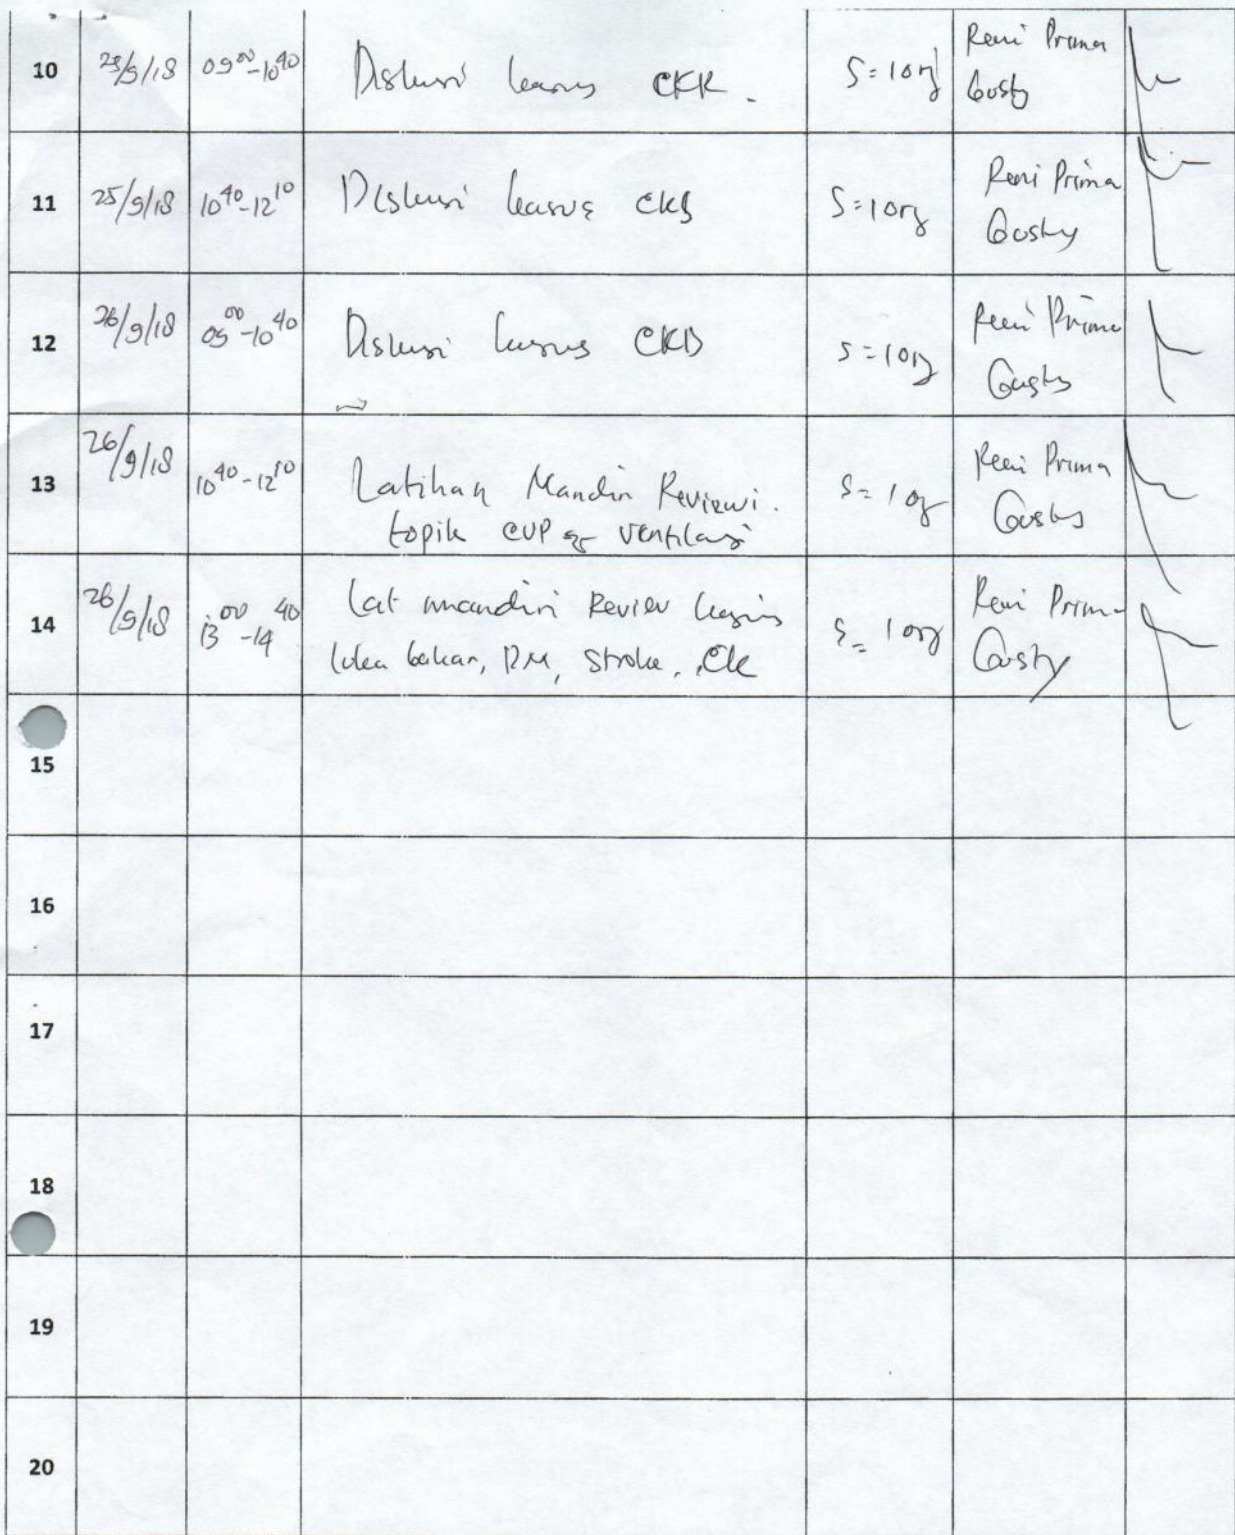 10 25/9/18 09⁰⁰-10⁴⁰ Diskusi kasus CKR. S=1org Reni Prima
Gusty
11 25/9/18 10⁴⁰-12¹⁰ Diskusi kasus CKS S=1org Reni Prima
Gusty
12 26/9/18 09⁰⁰-10⁴⁰ Diskusi kasus CKB S=1org Reni Prima
Gusty
13 26/9/18 10⁴⁰-12¹⁰ Latihan Mandiri Review S=1org Reni Prima
topik CVP ventilasi Gusty
14 26/9/18 13⁰⁰-14⁴⁰ Lat mandiri Review kasus S=1org Reni Prima
luka bakar, DM, stroke, CK Gusty
15
16
17
18
19
20